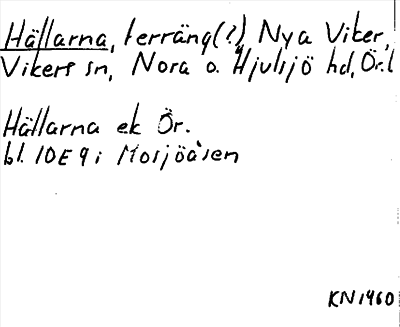 Hällarna, terräng(?), Nya Viker,
Vikers sn, Nora o. Hjulsjö hd, Ör.l
Hällarna ek Ör.
bl. 10E 9i Mosjöåsen
KN 1460